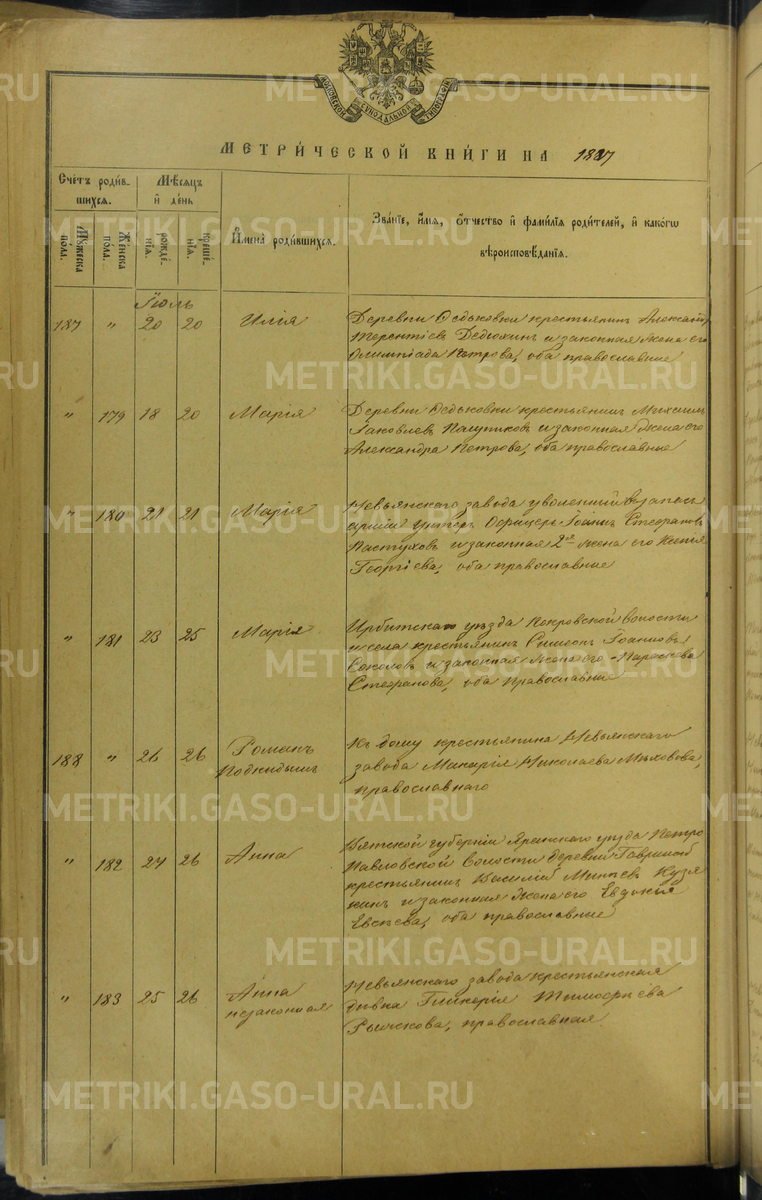 МОСКОВСКОЙ СѴНОДАЛЬНОЙ ТИПОГРАФІИ
МЕТРИ́ЧЕСКОЙ КНИ́ГИ НА 1887
Сче́тъ роди́в-
шихсѧ.
Мѣ́сѧцъ
и҆ де́нь
И҆мена̀ роди́вшихсѧ.
Зва́нїе, и҆́мѧ, ѻ҆́тчество и҆ фами́лїѧ роди́телей, и҆ какогѡ
вѣроисповѣ́данїѧ.
Мꙋ́жеска
по́ла.
Же́нска
по́ла.
рожде́-
нїѧ.
креще́-
нїѧ.
Іюль
187 " 20 20 Илія
Деревни Федьковки крестьянинъ Александр
Терентіевъ Дедюхинъ и законная жена его
Олимпіада Петрова, оба православные
" 179 18 20 Марія
Деревни Федьковки крестьянинъ Михаилъ
Іаковлевъ и законная жена его
Александра Петрова, оба православные
" 180 21 21 Марія
Невьянскаго завода уволенный въ запасъ
арміи Унтеръ Офицеръ Іоаннъ Стефановъ
Пастуховъ и законная 2ая жена его Ксенія
Георгіева, оба православные
" 181 23 25 Марія
Ирбитскаго уѣзда Покровской волости
и села крестьянинъ Симеонъ Іоанновъ
Соколовъ и законная жена его Параскева
Стефанова, оба православные
188 " 26 26 Романъ
Подкидышъ
Къ дому крестьянина Невьянскаго
завода Макарія Николаева
православнаго
" 182 24 26 Анна
Вятской губерніи Яранскаго уѣзда Петро
Павловской волости деревни
крестьянинъ Василій Кузя
кинъ и законная жена его Евдокія
Евсѣева, оба православные
" 183 25 26 Анна
незаконная
Невьянскаго завода крестьянская
дѣвка Гликерія Тимофеева
Рычкова, православная
METRIKI.GASO-URAL.RU